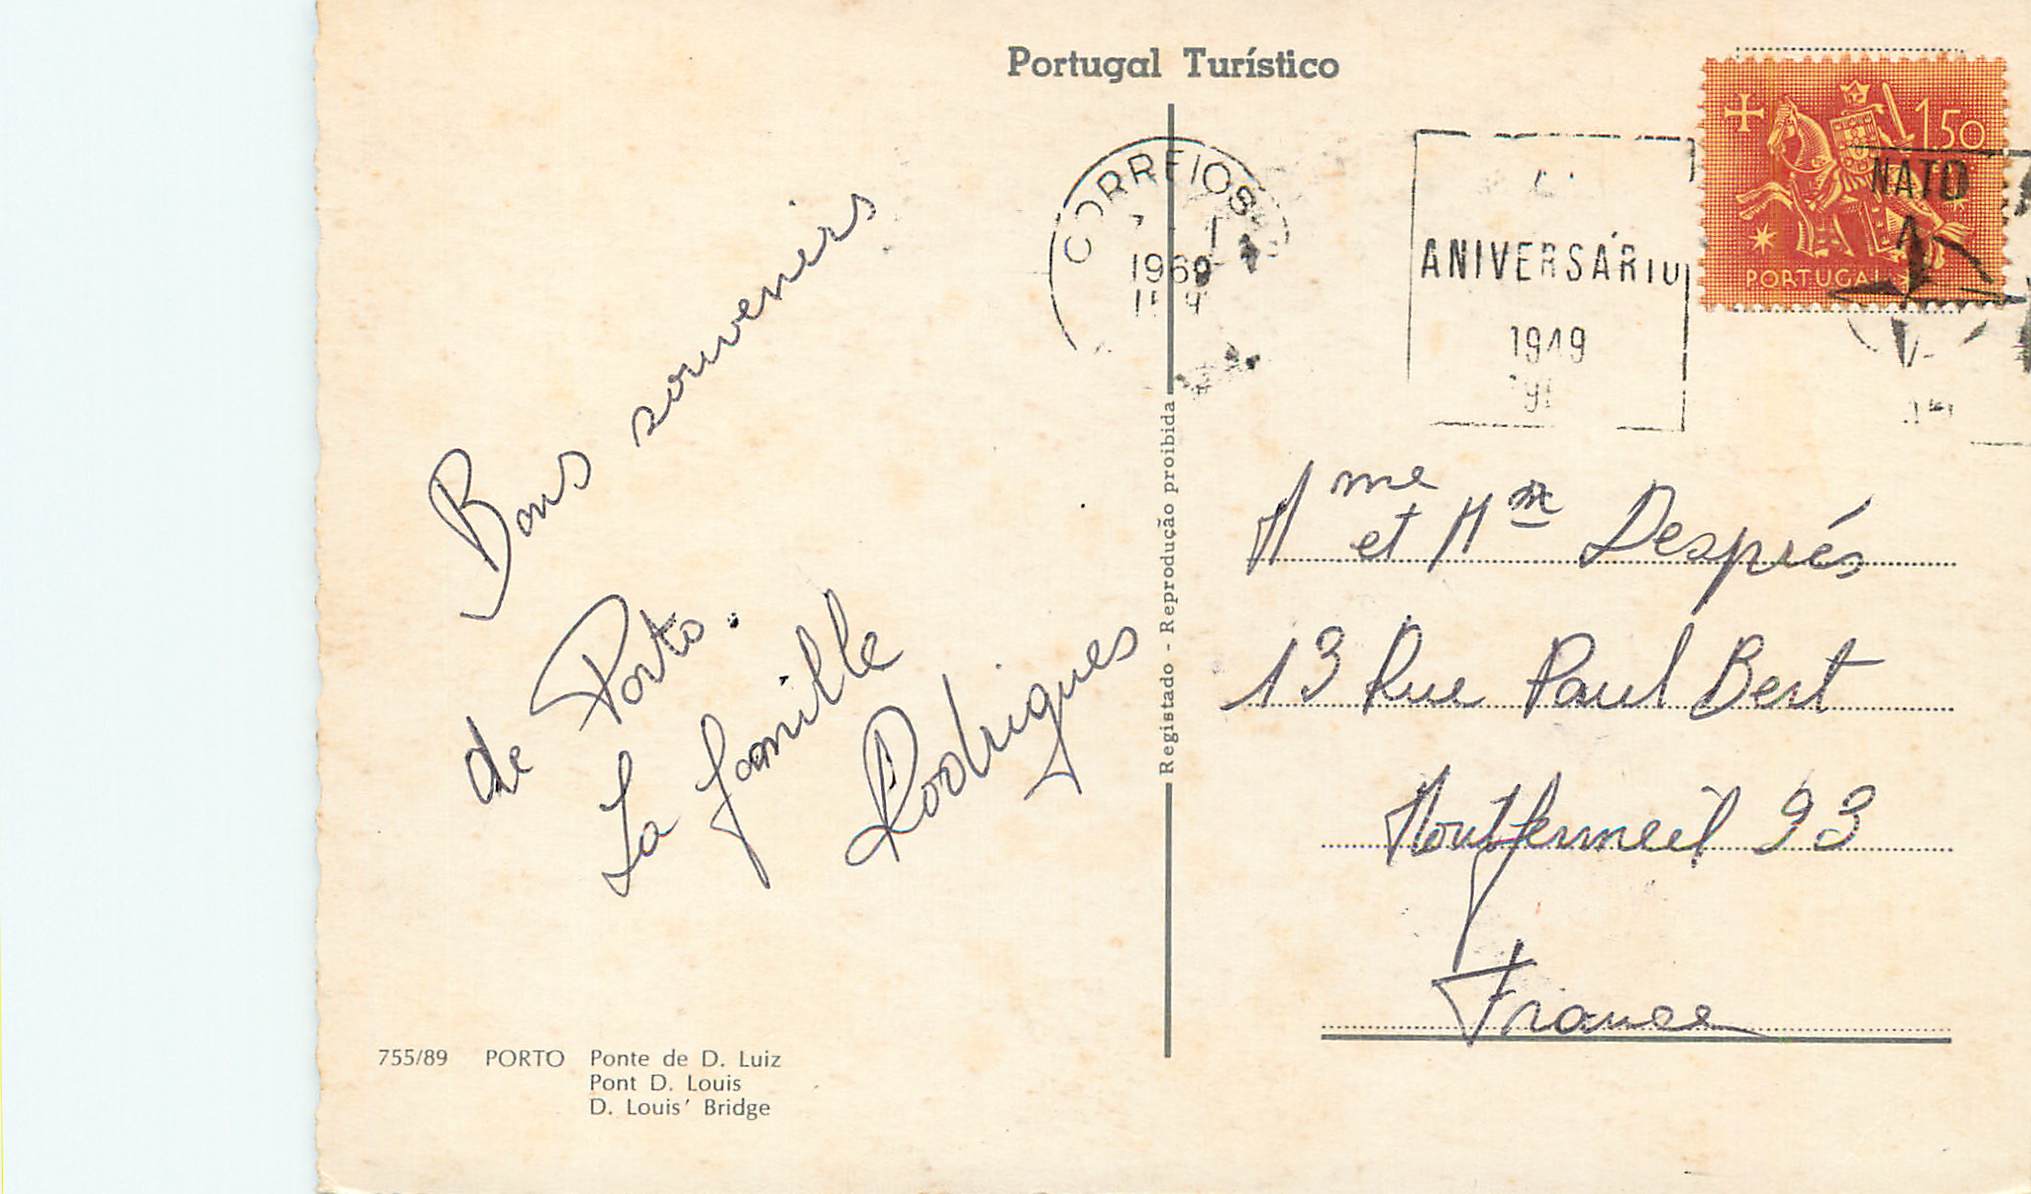 Portugal Turístico
150
PORTUGAL
NATO
CORREIOS
1969
ANIVERSÁRIO
1949
Bons souvenirs
de Porto.
La famille
Rodrigues
Mme et Mm Després
13 Rue Paul Bert
Montfermeil 93
France
Registado - Reprodução proibida
755/89 PORTO Ponte de D. Luiz
Pont D. Louis
D. Louis' Bridge